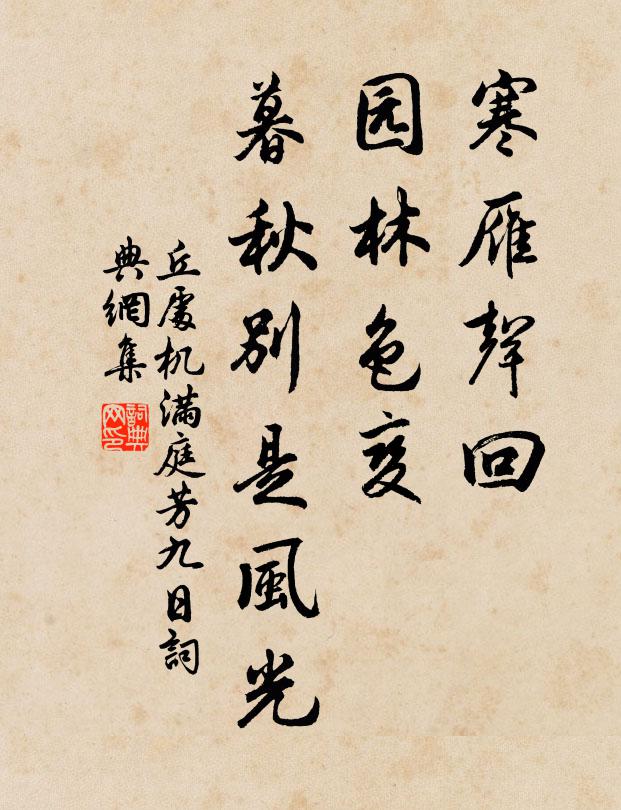 寒雁聲回
园林色变
暮秋別是風光
丘處机滿庭芳九日詞
典網集
詞典网印